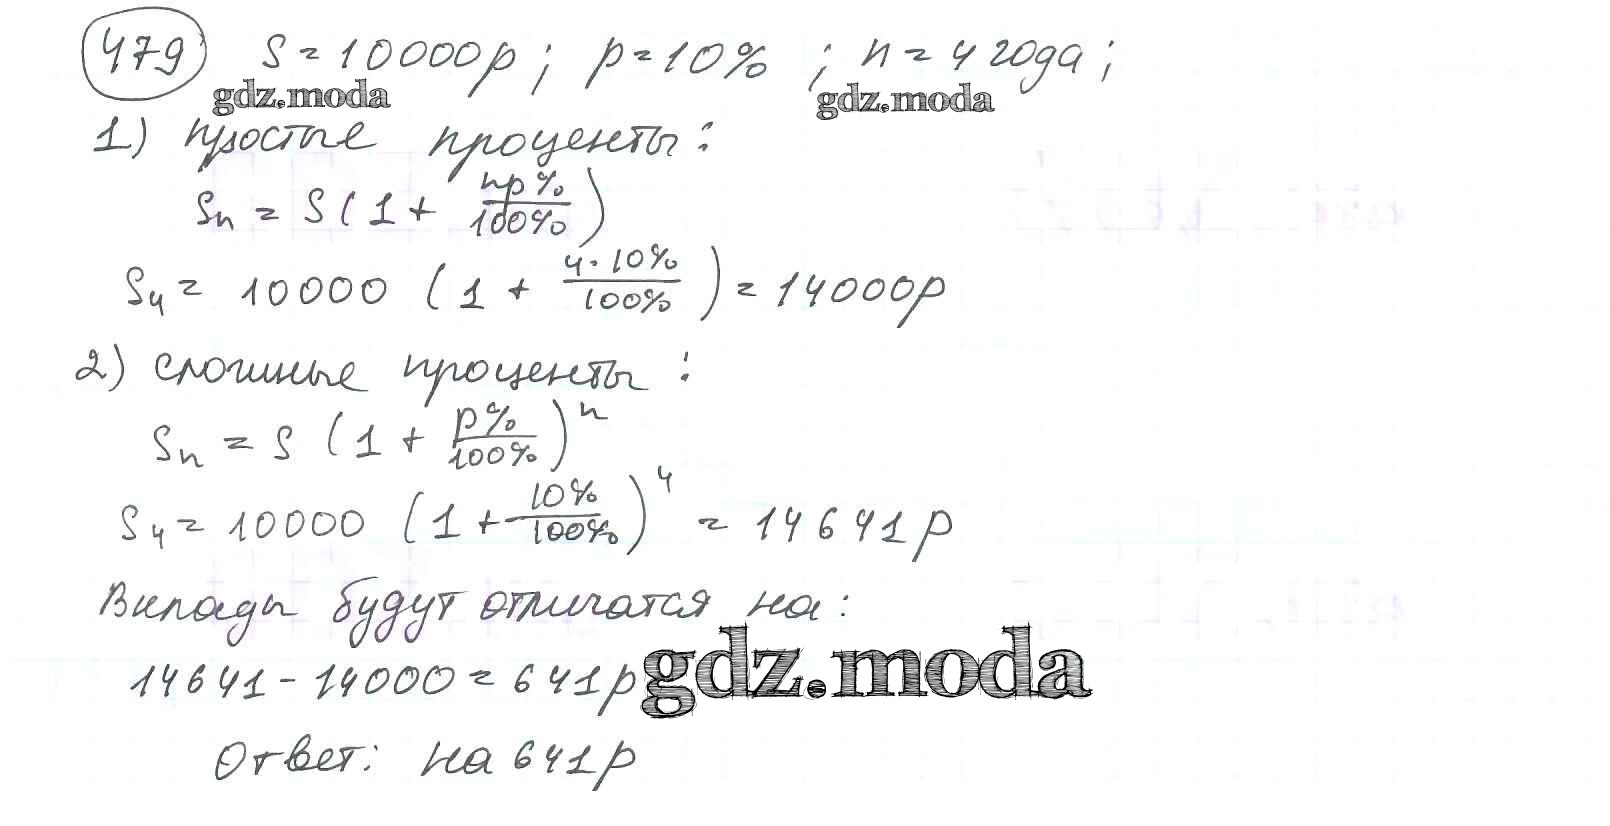 479 S = 10000р; p = 10% ; n = 4 года;
gdz.moda gdz.moda
1) простые проценты:
Sn = S(1 + np%/100%)
S4 = 10000 (1 + 4·10%/100%) = 14000р
2) сложные проценты:
Sn = S (1 + p%/100%)^n
S4 = 10000 (1 + 10%/100%)^4 = 14641р
Вклады будут отличатся на:
14641 - 14000 = 641р
gdz.moda
Ответ: на 641р